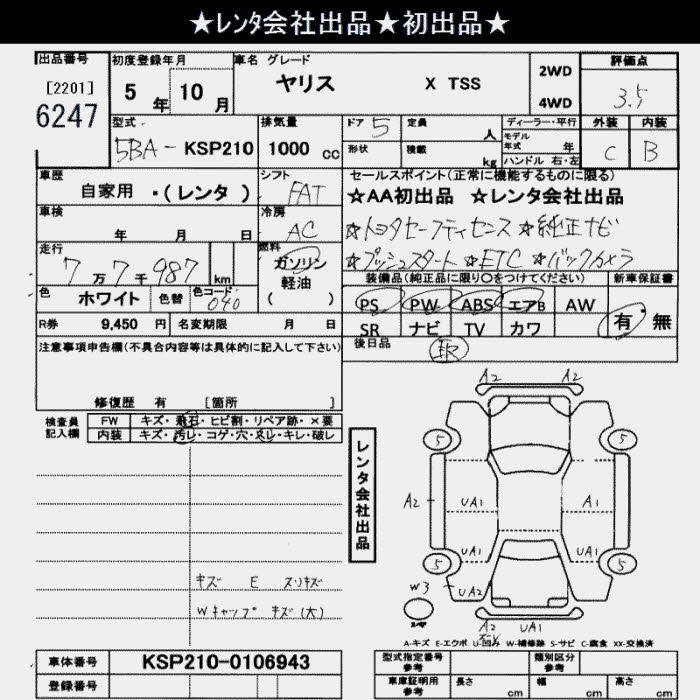 ★レンタ会社出品★初出品★
出品番号 初度登録年月 車名 グレード 2WD 4WD 評価点
[2201] 6247 5年 10月 ヤリス X TSS 3.5
型式 排気量 ドア 5 定員 人 ディーラー・平行 外装 内装
5BA - KSP210 1000 cc 形状 積載 kg モデル年式 年 C B
ハンドル 右・左
車歴 シフト セールスポイント(正常に機能するものに限る)
自家用 ・(レンタ) FAT ☆AA初出品 ☆レンタ会社出品
車検 年 月 日 冷房 AC ☆トヨタセーフティセンス ☆純正ナビ
走行 7万7千987 km 燃料 ガソリン 軽油 ( ) ☆プッシュスタート ☆ETC ☆バックカメラ
装備品(純正品に限り○をつけてください) 新車保証書
色 ホワイト 色替 色コード 040 PS PW ABS エアB AW 有・無
R券 9,450 円 名変期限 月 日 SR ナビ TV カワ
注意事項申告欄(不具合内容等は具体的に記入して下さい) 後日品
修復歴 有 [箇所
検査員記入欄 FW キズ・飛石・ヒビ割・リペア跡・×要
内装 キズ・汚レ・コゲ・穴・スレ・キレ・破レ
レンタ会社出品
A2 A2
5 5
A2 UA1 A1
UA1 UA1
5 5
W3 UA2
A2 UA1
キズ E スリキズ
Wキャップ キズ(大)
A-キズ E-エクボ U-凹み W-補修跡 S-サビ C-腐食 XX-交換済
車体番号 KSP210-0106943 型式指定番号 参考 類別区分 参考
登録番号 車庫証明用 参考 長さ cm 幅 cm 高さ cm